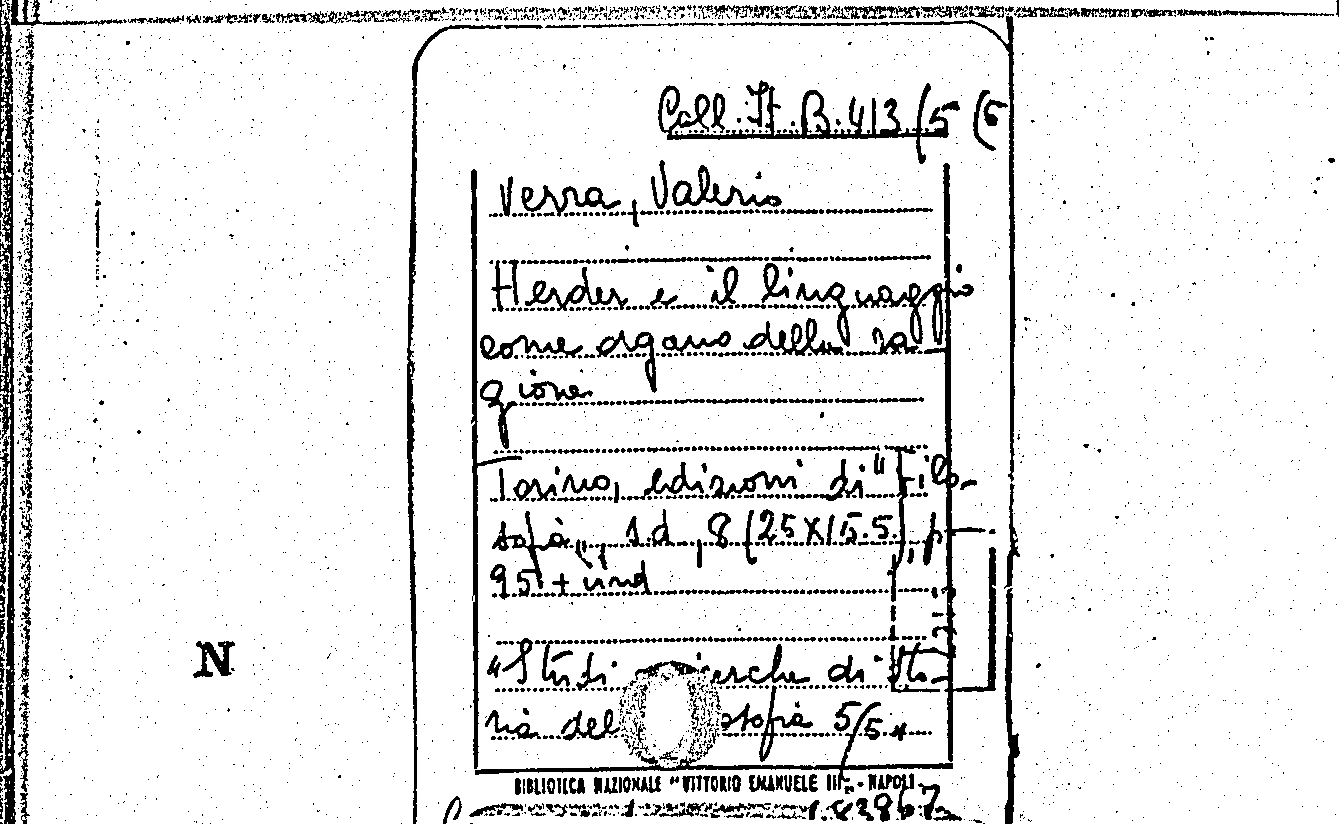 Coll. It. B. 413 (5 (5
Verra, Valerio
Herder e il linguaggio
come organo della ra
gione
Torino, edizioni di "Filo-
sofia", s.d., 8 (25x15.5), p
95 + ind
"Studi ricerche di Sto-
ria del 5/5"
N
BIBLIOTECA NAZIONALE "VITTORIO EMANUELE III" - NAPOLI